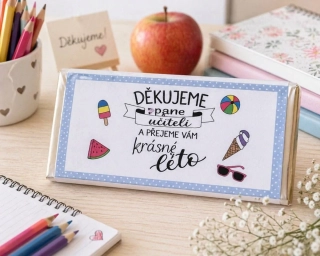 Děkujeme!
DĚKUJEME
pane
učiteli
A PŘEJEME VÁM
krásné
léto